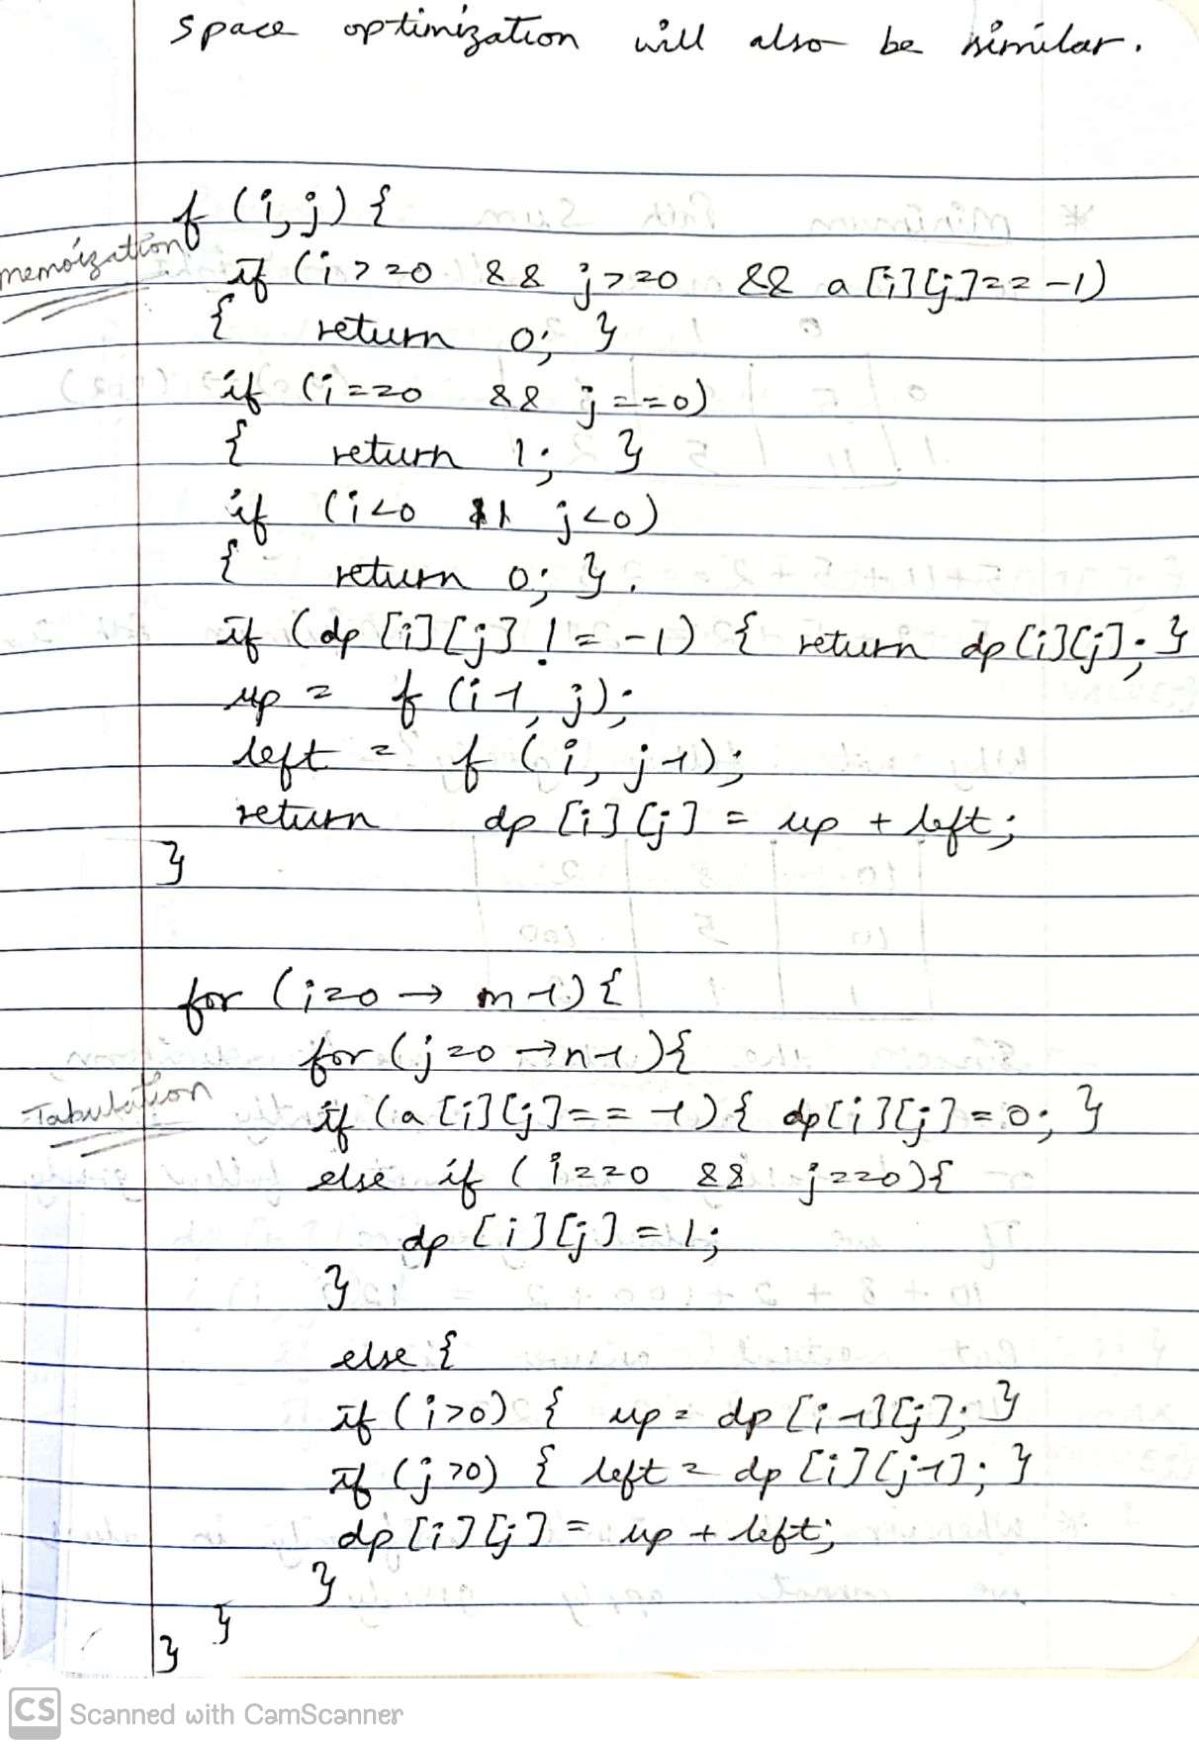 space optimization will also be similar.
f (i, j) {
memoization
if (i >= 0 && j >= 0 && a[i][j] == -1)
{ return 0; }
if (i == 0 && j == 0)
{ return 1; }
if (i < 0 || j < 0)
{ return 0; }.
if (dp[i][j] != -1) { return dp[i][j]; }
up = f (i-1, j);
left = f (i, j-1);
return dp[i][j] = up + left;
}
for (i=0 → m-1) {
for (j=0 → n-1) {
Tabulation
if (a[i][j] == -1) { dp[i][j] = 0; }
else if (i==0 && j==0) {
dp[i][j] = 1;
}
else {
if (i>0) { up = dp[i-1][j]; }
if (j>0) { left = dp[i][j-1]; }
dp[i][j] = up + left;
}
}
}
CS Scanned with CamScanner